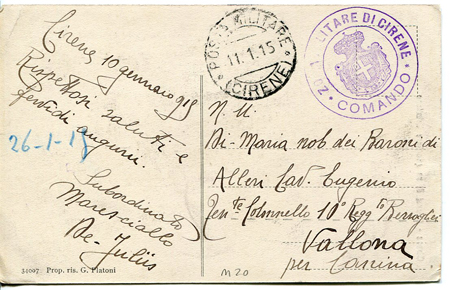 Cirene 10 gennaio 915
Rispettosi saluti e
fervidi auguri.
Subordinato
Maresciallo
De-Juliis
26-1-15
34097 Prop. ris. G. Platoni
POSTA MILITARE
11.1.15
(CIRENE)
MILITARE DI CIRENE
COMANDO
N. U.
Di-Maria nob dei Baroni di
Alleri Cav. Eugenio
Ten.te Colonnello 10° Regg.to Bersaglieri
Vallona
per
M20